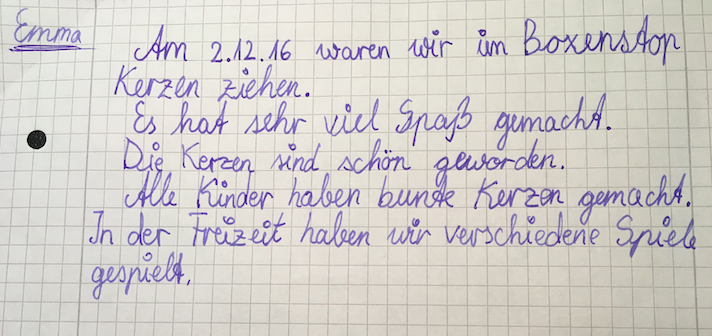 Emma
Am 2.12.16 waren wir im Boxenstop
Kerzen ziehen.
Es hat sehr viel Spaß gemacht.
Die Kerzen sind schön geworden.
Alle Kinder haben bunte Kerzen gemacht.
In der Freizeit haben wir verschiedene Spiele
gespielt.